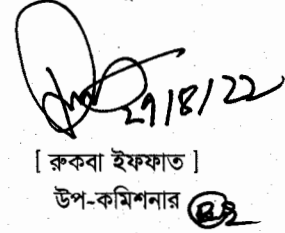 29/8/22
[ রুকবা ইফফাত ]
উপ-কমিশনার